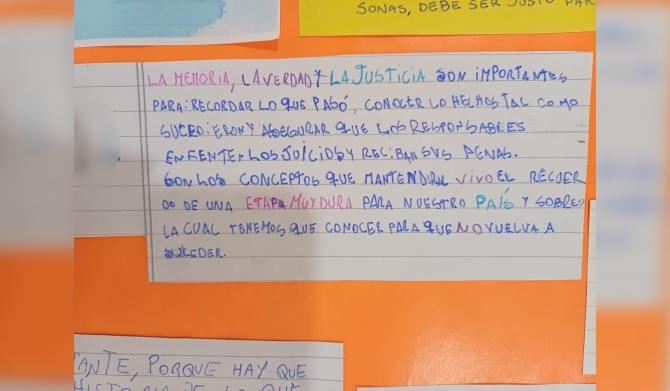 SONAS, DEBE SER JUSTO PAR
LA MEMORIA, LA VERDAD Y LA JUSTICIA SON IMPORTANTES
PARA: RECORDAR LO QUE PASÓ, CONOCER LO HECHOS TAL COMO
SUCEDIERON Y ASEGURAR QUE LOS RESPONSABLES
ENFENTEN LOS JUICIOS Y RECIBAN SUS PENAS.
SON LOS CONCEPTOS QUE MANTENDRAN VIVO EL RECUER
DO DE UNA ETAPA MUY DURA PARA NUESTRO PAÍS Y SOBRE
LA CUAL TENEMOS QUE CONOCER PARA QUE NO VUELVA A
SUCEDER.
ANTE, PORQUE HAY QUE